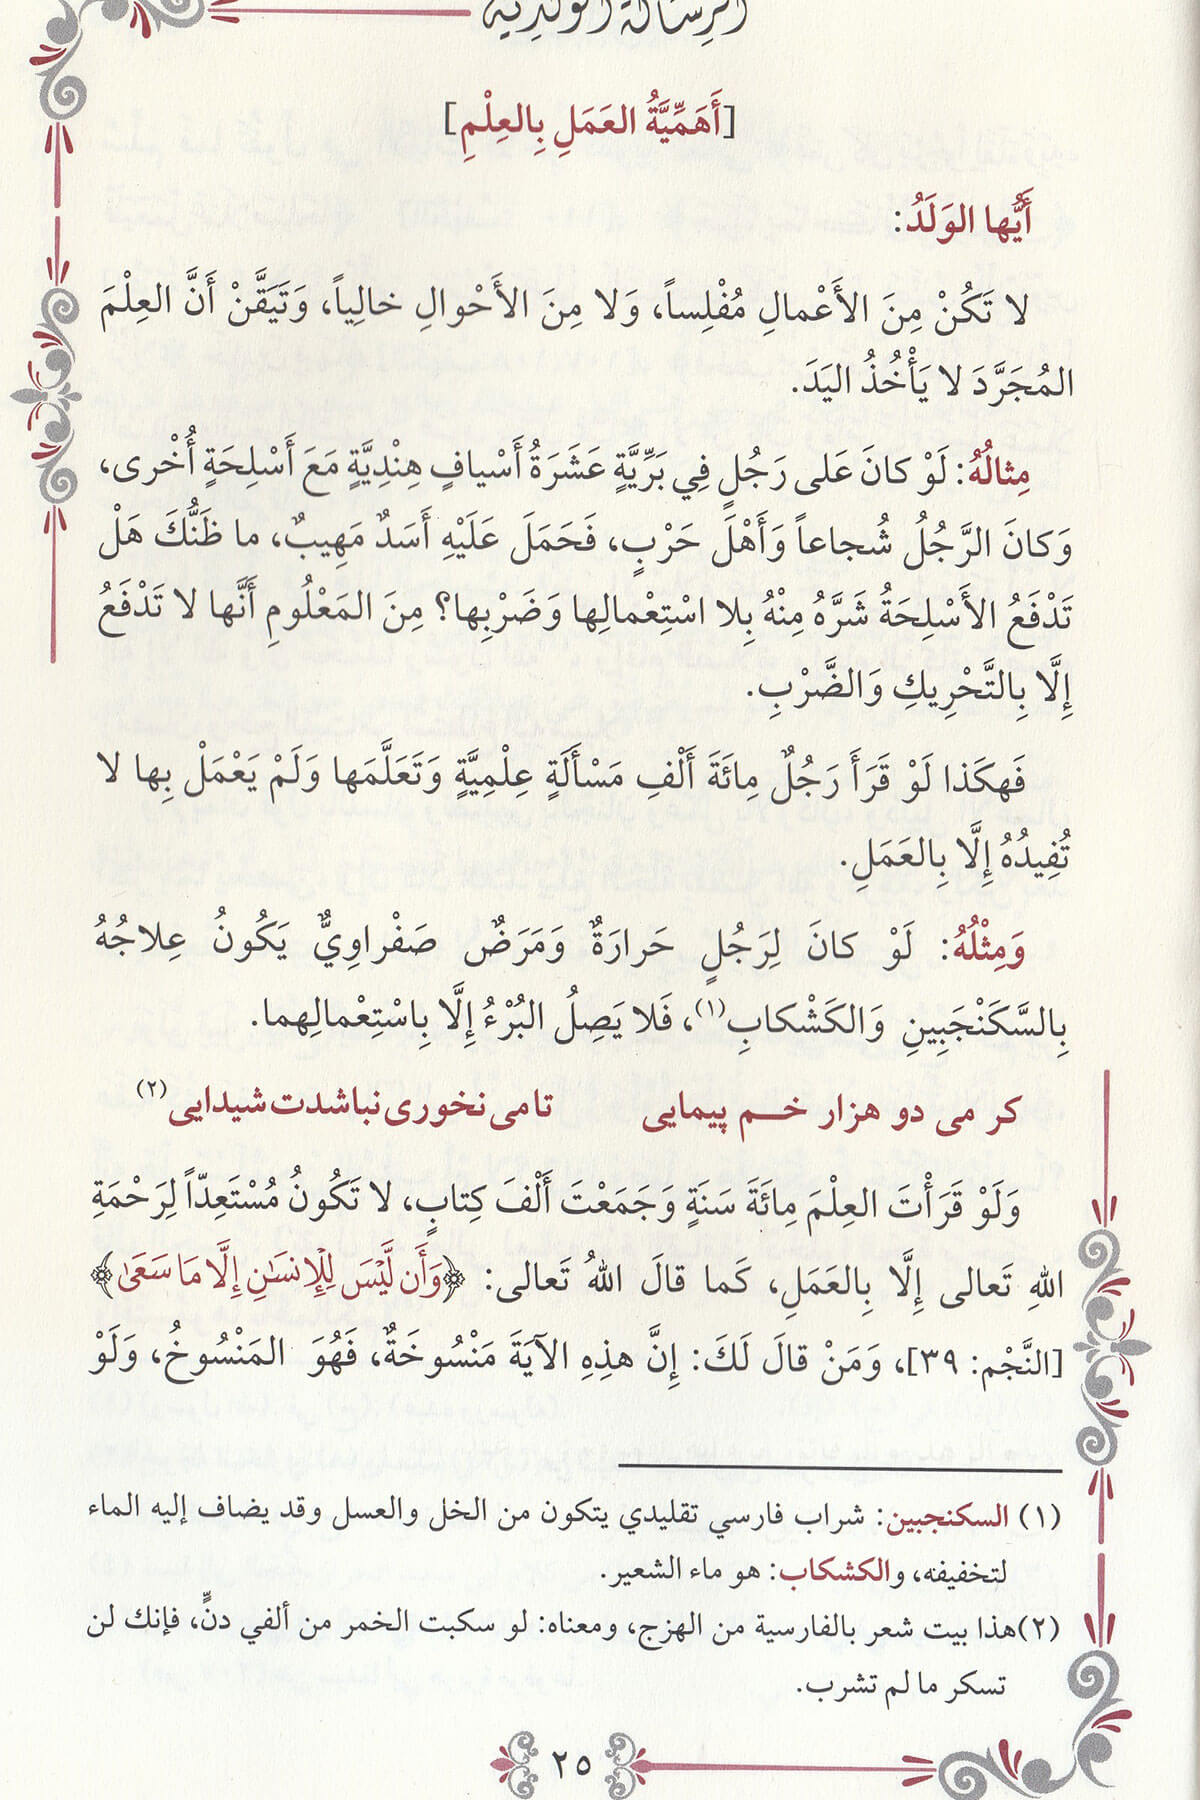 الرسالة الولدية
[أَهَمِّيَّةُ العَمَلِ بِالعِلْمِ]
أَيُّها الوَلَدُ:
لا تَكُنْ مِنَ الأَعْمالِ مُفْلِساً، وَلا مِنَ الأَحْوالِ خالِياً، وَتَيَقَّنْ أَنَّ العِلْمَ
المُجَرَّدَ لا يَأْخُذُ اليَدَ.
مِثالُهُ: لَوْ كانَ عَلى رَجُلٍ فِي بَرِّيَّةٍ عَشَرَةُ أَسْيافٍ هِنْدِيَّةٍ مَعَ أَسْلِحَةٍ أُخْرى،
وَكانَ الرَّجُلُ شُجاعاً وَأَهْلَ حَرْبٍ، فَحَمَلَ عَلَيْهِ أَسَدٌ مَهِيبٌ، ما ظَنُّكَ هَلْ
تَدْفَعُ الأَسْلِحَةُ شَرَّهُ مِنْهُ بِلا اسْتِعْمالِها وَضَرْبِها؟ مِنَ المَعْلُومِ أَنَّها لا تَدْفَعُ
إِلَّا بِالتَّحْرِيكِ وَالضَّرْبِ.
فَهكَذا لَوْ قَرَأَ رَجُلٌ مِائَةَ أَلْفِ مَسْأَلَةٍ عِلْمِيَّةٍ وَتَعَلَّمَها وَلَمْ يَعْمَلْ بِها لا
تُفِيدُهُ إِلَّا بِالعَمَلِ.
وَمِثْلُهُ: لَوْ كانَ لِرَجُلٍ حَرارَةٌ وَمَرَضٌ صَفْراوِيٌّ يَكُونُ عِلاجُهُ
بِالسَّكَنْجَبِينِ وَالكَشْكابِ(١)، فَلا يَصِلُ البُرْءُ إِلَّا بِاسْتِعْمالِهِما.
كر می دو هزار خم پیمایی تا می نخوری نباشدت شیدایی(٢)
وَلَوْ قَرَأْتَ العِلْمَ مِائَةَ سَنَةٍ وَجَمَعْتَ أَلْفَ كِتابٍ، لا تَكُونُ مُسْتَعِدّاً لِرَحْمَةِ
اللهِ تَعالى إِلَّا بِالعَمَلِ، كَما قالَ اللهُ تَعالى: ﴿وَأَن لَّيْسَ لِلْإِنسَٰنِ إِلَّا مَا سَعَىٰ﴾
[النَّجْم: ٣٩]، وَمَنْ قالَ لَكَ: إِنَّ هذِهِ الآيَةَ مَنْسُوخَةٌ، فَهُوَ المَنْسُوخُ، وَلَوْ
(١) السكنجبين: شراب فارسي تقليدي يتكون من الخل والعسل وقد يضاف إليه الماء
لتخفيفه، والكشكاب: هو ماء الشعير.
(٢)هذا بيت شعر بالفارسية من الهزج، ومعناه: لو سكبت الخمر من ألفي دنٍّ، فإنك لن
تسكر ما لم تشرب.
٢٥